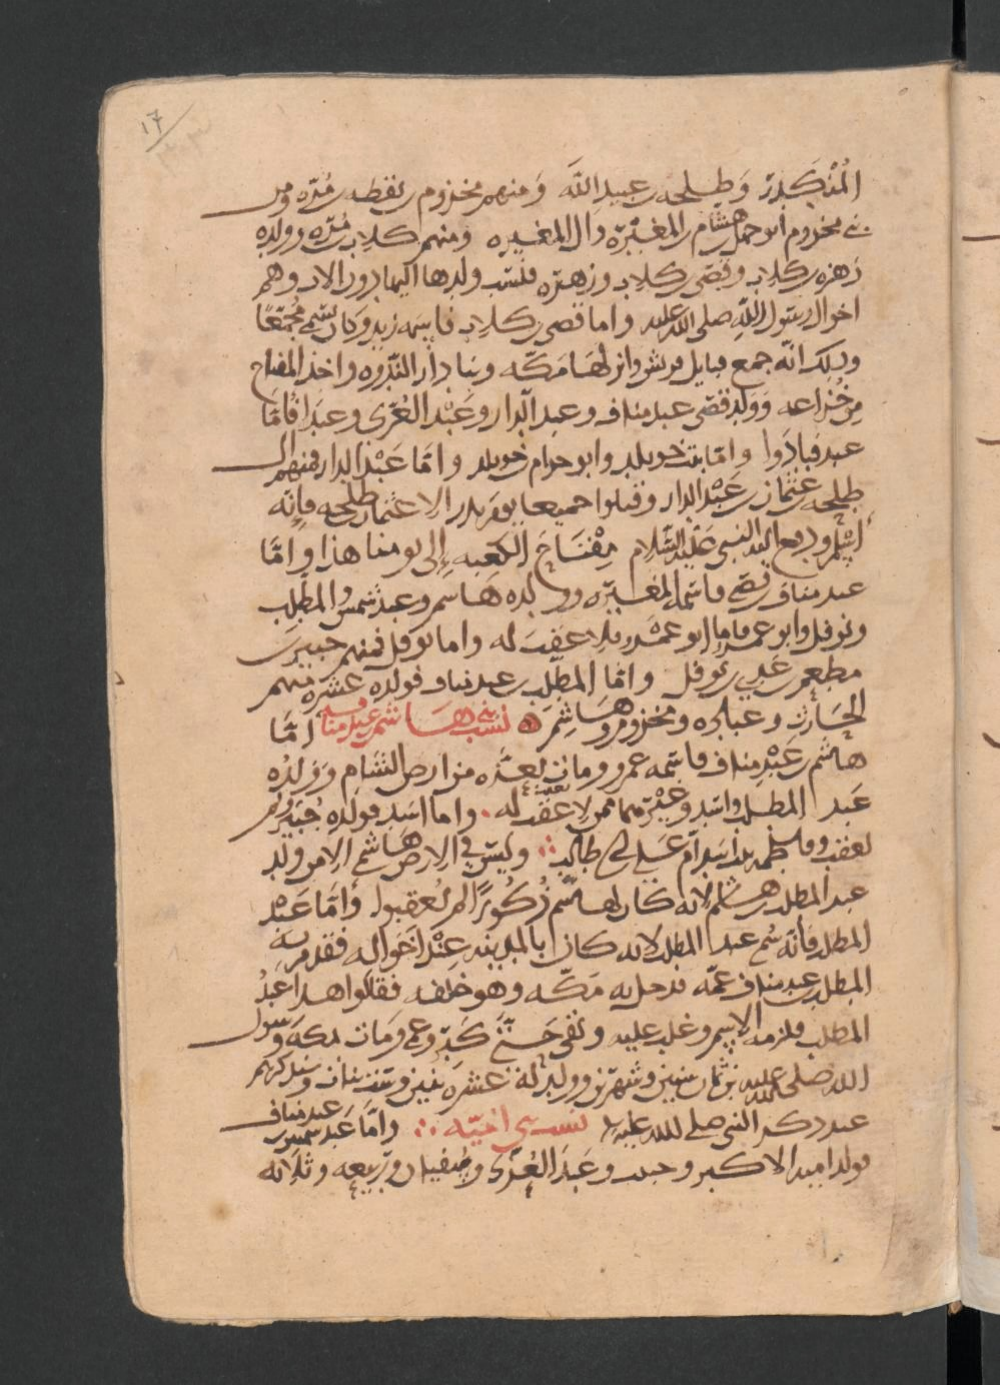 ١٦
المُنْكَدِر وَطلحه بن عبيد الله وَمنهم مخزوم بن يقظه بن مُرّه ومن
بني مخزوم ابو جهل بن هشام بن المغيْرَة وال المغيره ومنهم كلاب بن مُرّه وولده
زهره بن كلاب وقصَى بن كلاب وزهرَه فنُسب ولدها اليها دون الاب وهم
اخوال رسول اللّه صلى الله عليه واما قصى بن كلاب فاسمه زيد وكان يسمى مُجمّعًا
وذلك انّه جمع قبايل قريش وانزلها مَكّه وبنا دار النّدْوه واخذ المفتاح
مِن خُزاعه وَولد قصَى عبد مناف وعبد الدار وعَبْد العُزّى وعبَدا فامّا
عبد فبادَوا وامّا بنت خويلد وابو حزام خويلد وامّا عَبْد الدار فمنهم ال
طلحه بن عثمان بن عَبْد الدار وقتلوا جميعا يوم بدر الا عثمان بن طلحه فانّه
أسْلم ودفع اليه النبى عَليْه السّلام مِفْتاحَ الكعبه إلى يومنا هذا وامّا
عبد مناف بن قصى فاسمه المغيْره وولده هاسم وعبد شمس والمطّلب
ونوفل وابو عمرو فاما ابو عمْرو فلا عَقِبَ له واما نوفل فمنهم جبير بن
مطعم بن عَدي بن نوفل وامّا المطّلب بن عبد مناف فولده عشره منهم
الحَارث وعباده ومخزمه وهَاشِم نسَب بني هَاشم بن عبد مناف امّا
هاشم بن عَبْد مناف فاسْمه عمرو ومات بغَزّه من ارض الشام وَوَلدُه
عَبد المطلب واسَد وغيْرهما ممن لا عقب له . واما اسَد فولدُه حُنَيْن ولم
يعقب وفاطمه بنت اسَد امّ عَلى بن ابي طالب ؞ وليْسَ في الارض هَاشمي الا من ولد
عبد المطلب بن هَاشم لانّه كان لهاشم ذُكُورًا لم يُعْقبوا وَأمّا عَبْد
المطلب فأنّه سُمى عبد المطلب لانه كان بالمدينه عِنْدَ اخَواله فقدم به
المطلب بن عبد مناف عمّه فدخل به مَكّه وهو خلفه فقالوا هدا عَبْدُ
المطلب فلزمه الاسم وغلب عليه وبقى حَتّى كَبُر وعمى وَمات بمكة وَرسول
الله صَلى الله عليه بن ثمان سنين وشهرين وولد له عشرَة بنين وستّ بنات وسنذكرهم
عند دكر النبى صلى الله عليه نسب بني اميّه ؞ وامّا عَبد شمس بن عبد مناف
فولد اميه الاكبر وحبيب وعَبد العُزّى وسُفيان وربيعه وثلاثه